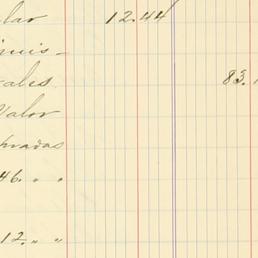 lar 12.44
inis-
rales. 83.
Valor
pradas
46. " "
12. " "